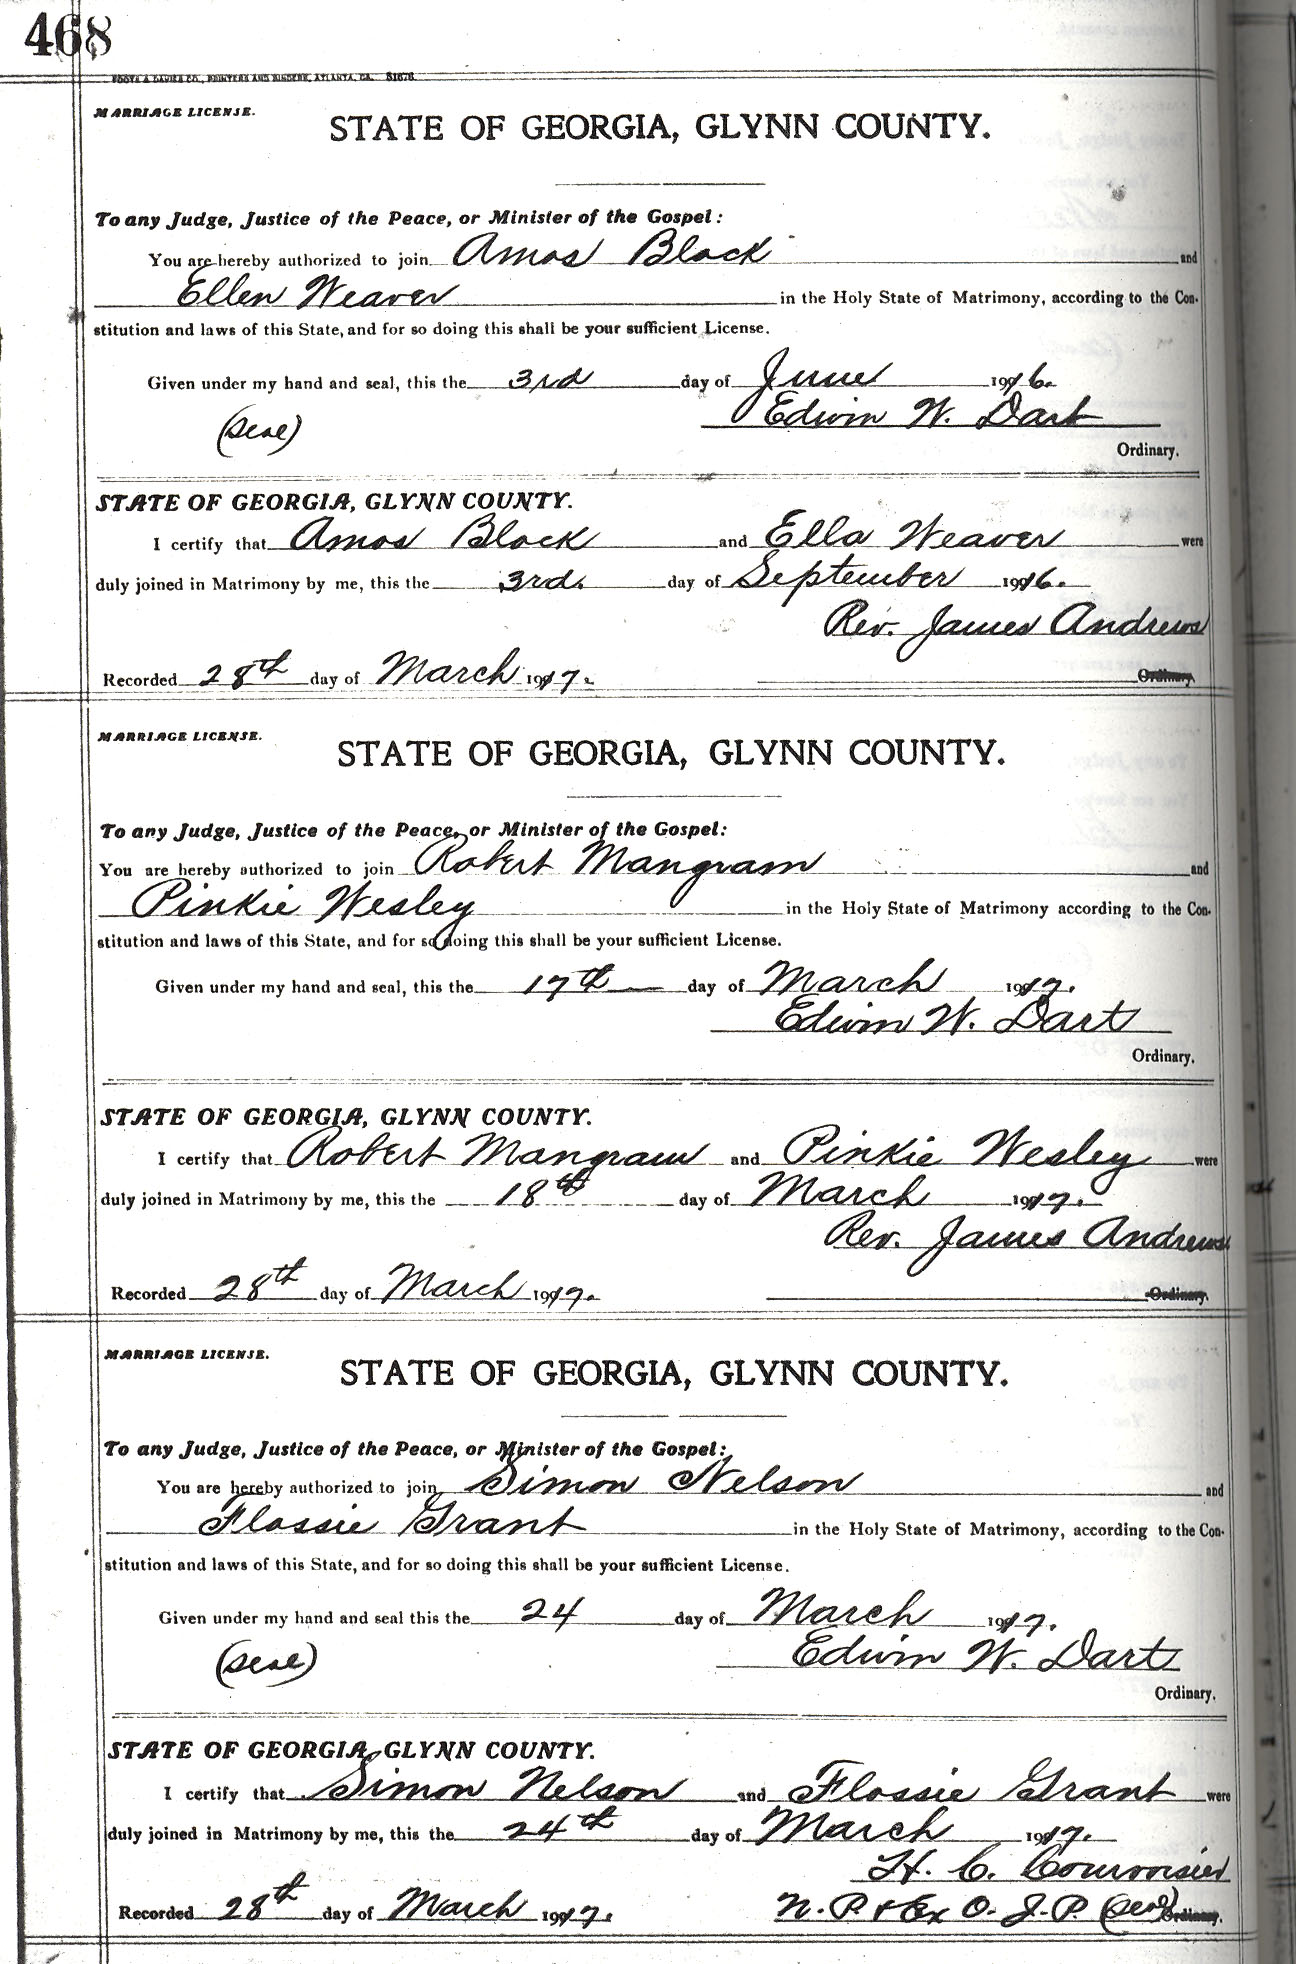 468
FOOTE & DAVIES CO., PRINTERS AND BINDERS, ATLANTA, GA. 81676
MARRIAGE LICENSE.
STATE OF GEORGIA, GLYNN COUNTY.
To any Judge, Justice of the Peace, or Minister of the Gospel:
You are hereby authorized to join Amos Block and
Ellen Weaver in the Holy State of Matrimony, according to the Con-
stitution and laws of this State, and for so doing this shall be your sufficient License.
Given under my hand and seal, this the 3rd day of June 1916.
(Seal) Edwin W. Dart
Ordinary.
STATE OF GEORGIA, GLYNN COUNTY.
I certify that Amos Block and Ella Weaver were
duly joined in Matrimony by me, this the 3rd. day of September 1916.
Rev. James Andrews
Recorded 28th day of March 1917. Ordinary.
MARRIAGE LICENSE.
STATE OF GEORGIA, GLYNN COUNTY.
To any Judge, Justice of the Peace, or Minister of the Gospel:
You are hereby authorized to join Robert Mangram and
Pinkie Wesley in the Holy State of Matrimony according to the Con-
stitution and laws of this State, and for so doing this shall be your sufficient License.
Given under my hand and seal, this the 17th day of March 1917.
Edwin W. Dart
Ordinary.
STATE OF GEORGIA, GLYNN COUNTY.
I certify that Robert Mangram and Pinkie Wesley were
duly joined in Matrimony by me, this the 18th day of March 1917.
Rev. James Andrews
Recorded 28th day of March 1917. Ordinary.
MARRIAGE LICENSE.
STATE OF GEORGIA, GLYNN COUNTY.
To any Judge, Justice of the Peace, or Minister of the Gospel:
You are hereby authorized to join Simon Nelson and
Flossie Grant in the Holy State of Matrimony, according to the Con-
stitution and laws of this State, and for so doing this shall be your sufficient License.
Given under my hand and seal this the 24 day of March 1917.
(Seal) Edwin W. Dart
Ordinary.
STATE OF GEORGIA, GLYNN COUNTY.
I certify that Simon Nelson and Flossie Grant were
duly joined in Matrimony by me, this the 24th day of March 1917.
H. C. Courvoisier
Recorded 28th day of March 1917. N. P. & Ex O. J. P. (Seal) Ordinary.